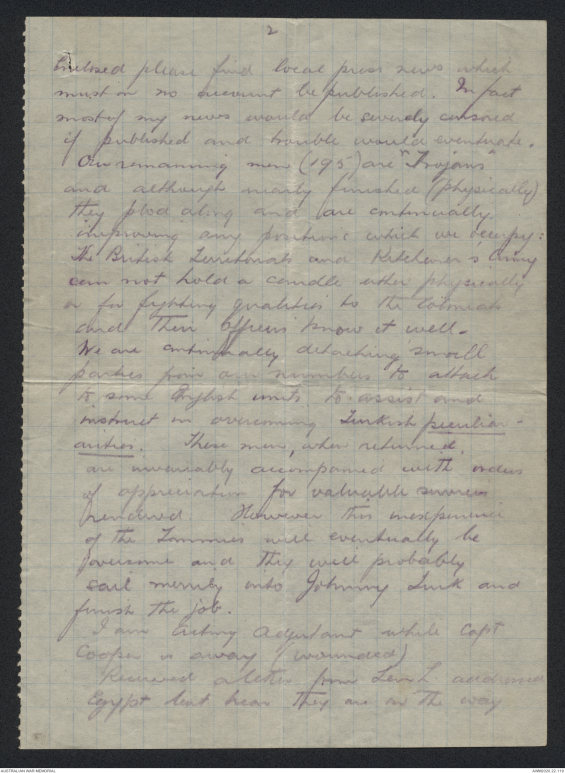 2
Enclosed please find local press news which
must on no account be published. In fact
most of my news would be severely censored
if published and trouble would eventuate.
Our remaining men (195) are "Trojans"
and although nearly finished (physically)
they plod along and are continually
improving any positions which we occupy:
The British Territorials and Kitchener's Army
can not hold a candle either physically
or for fighting qualities to the Colonials
and their Officers know it well.
We are continually detaching small
parties from our numbers to attach
to some English units to assist and
instruct in overcoming Turkish peculiar-
arities. These men, when returned,
are invariably accompanied with orders
of appreciation for valuable services
rendered. However this inexperience
of the Tommies will eventually be
overcome and they will probably
sail merrily into Johnny Turk and
finish the job.
I am acting Adjutant while Capt
Cooper is away (wounded)
Received a letter from addressed
Egypt but hear they are on the way
AUSTRALIAN WAR MEMORIAL